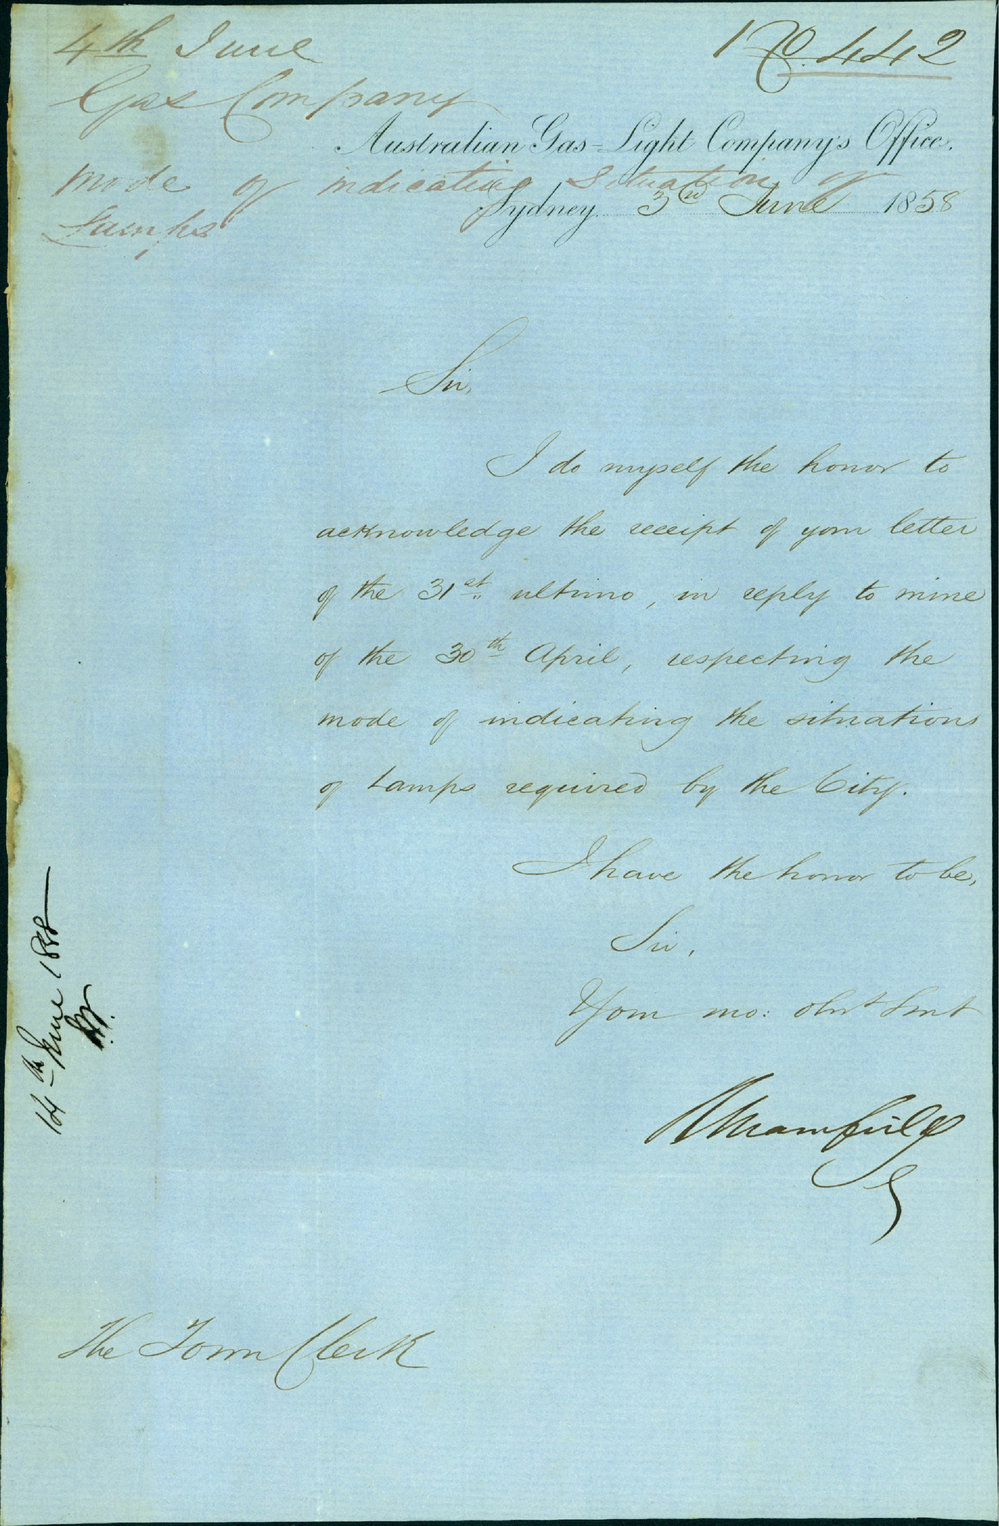 4th June
No. 442
Gas Company
Australian Gas-Light Company's Office.
Mode of indicating situation of
Sydney. 3rd June 1858
Lamps
Sir,
I do myself the honor to
acknowledge the receipt of your letter
of the 31st ultimo, in reply to mine
of the 30th April, respecting the
mode of indicating the situations
of Lamps required by the City.
I have the honor to be,
Sir,
Your mo: obnt Srvt
RMansfield
The Town Clerk
14th June 1858